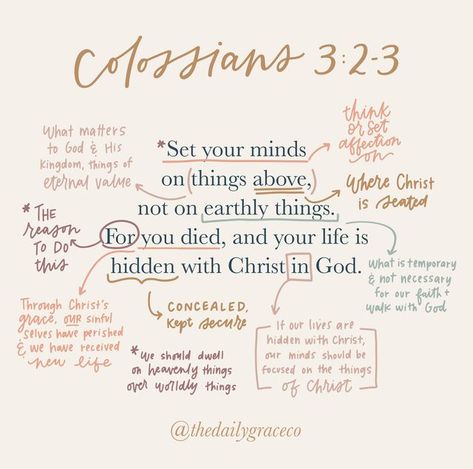 Colossians 3:2-3
What matters
to God & His
Kingdom, things of
eternal value
think
or set
affection
on
*Set your minds
on (things above,)
not on earthly things.
For you died, and your life is
hidden with Christ in God.
Where Christ
is seated
*THE
reason
TO DO
this
What is temporary
& not necessary
for our faith +
walk with God
Through Christ's
grace, our sinful
selves have perished
& we have received
new life
CONCEALED,
kept secure
*We should dwell
on heavenly things
over worldly things
If our lives are
hidden with Christ,
our minds should be
focused on the things
of Christ
@thedailygraceco